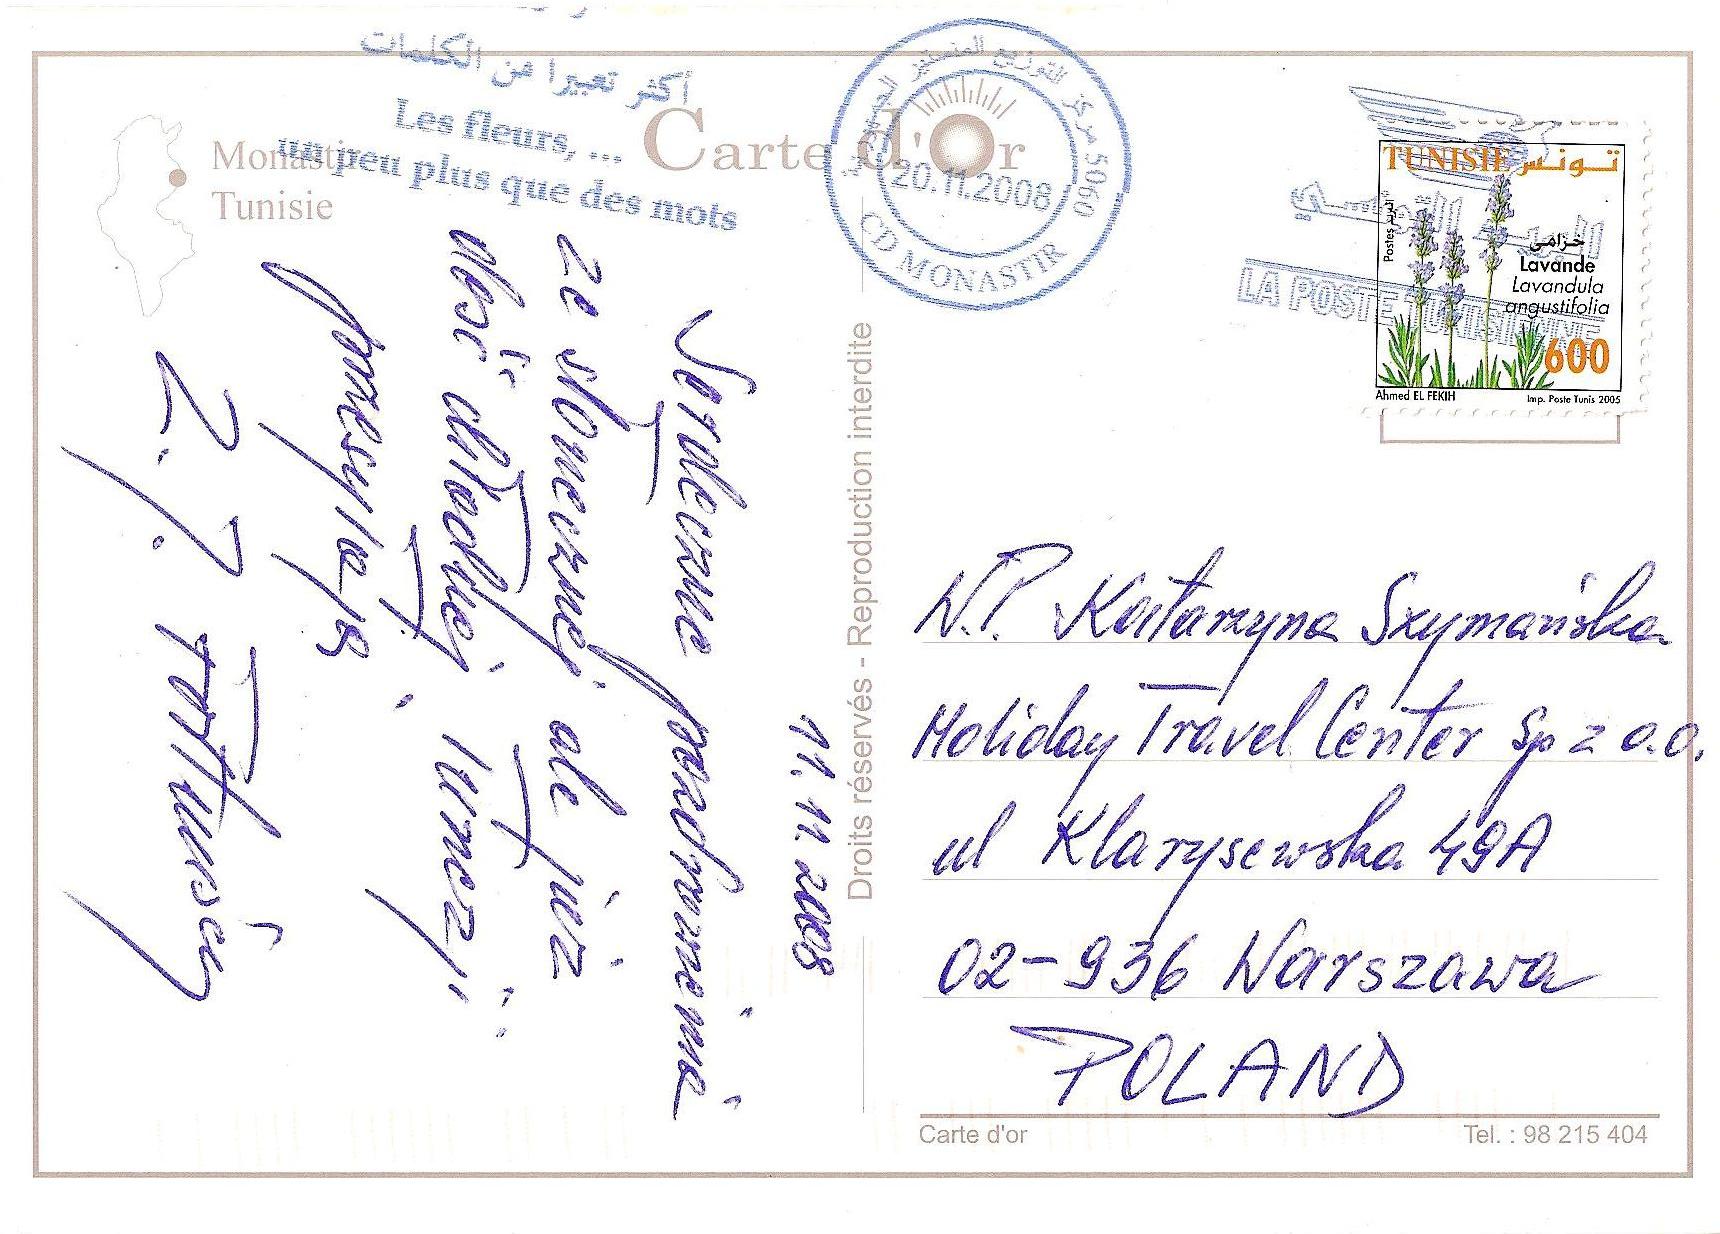 أكثر تعبيرا من الكلمات
Les fleurs, ...
un peu plus que des mots
Monastir
Tunisie
Carte d'Or
مركز التوزيع المنستير
5060
20.11.2008
CD MONASTIR
البريد التونسي
LA POSTE TUNISIENNE
TUNISIE تونس
Postes البريد
خزامى
Lavande
Lavandula
angustifolia
600
Ahmed EL FEKIH
Imp. Poste Tunis 2005
11.11.2008
Serdeczne pozdrowienia
ze słonecznej ale już
dość chłodnej Tunezji
przesyłają
Droits réservés - Reproduction interdite
W.P. Katarzyna Szymańska
Holiday Travel Center Sp z o.o.
ul Klarysewska 49A
02-936 Warszawa
POLAND
Carte d'or
Tel. : 98 215 404